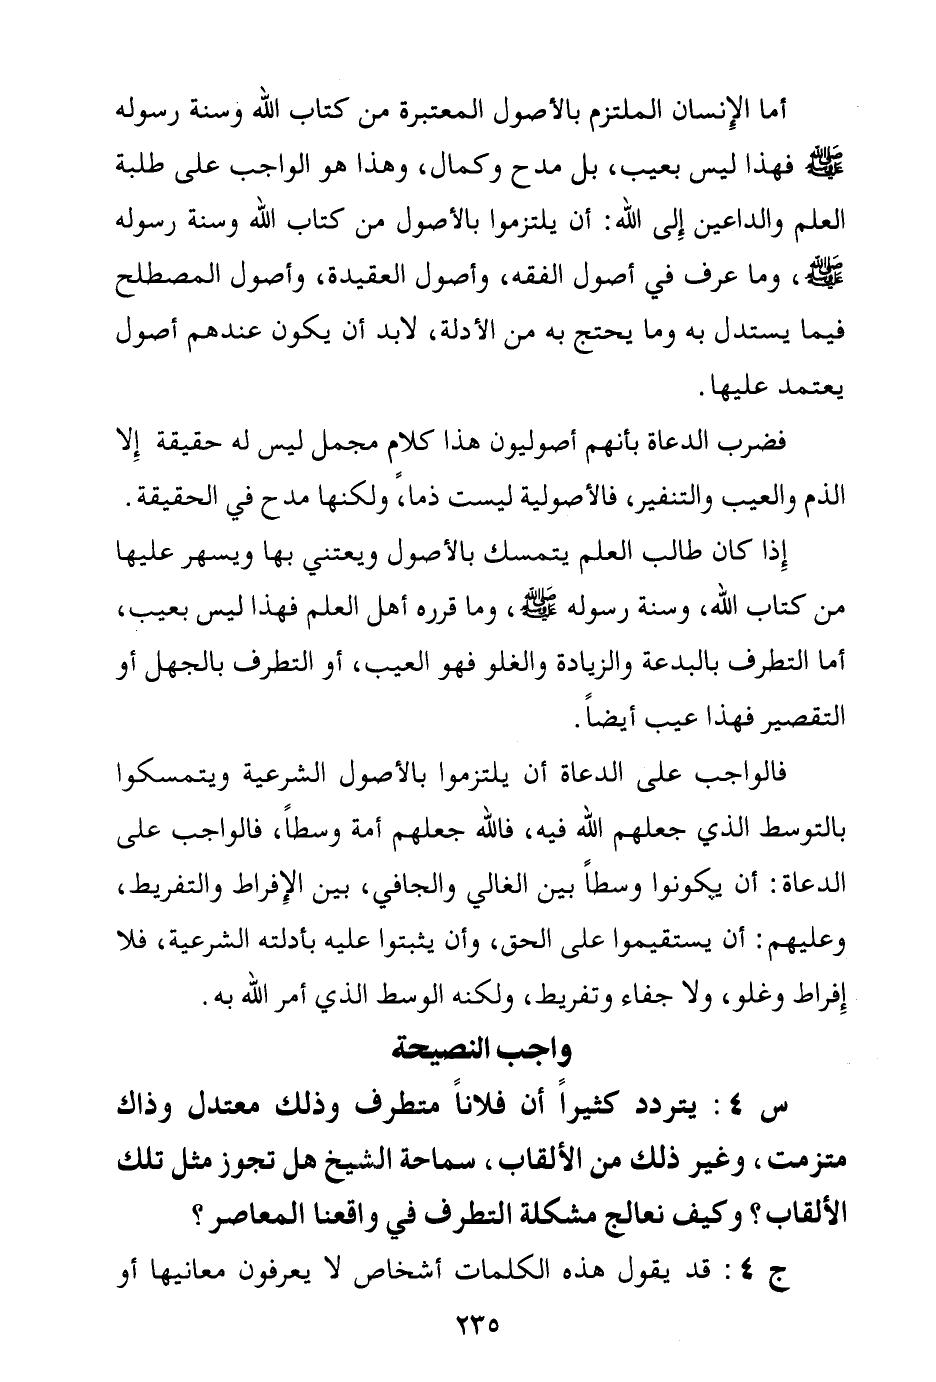 أما الإنسان الملتزم بالأصول المعتبرة من كتاب الله وسنة رسوله
ﷺ فهذا ليس بعيب، بل مدح وكمال، وهذا هو الواجب على طلبة
العلم والداعين إلى الله: أن يلتزموا بالأصول من كتاب الله وسنة رسوله
ﷺ، وما عرف في أصول الفقه، وأصول العقيدة، وأصول المصطلح
فيما يستدل به وما يحتج به من الأدلة، لابد أن يكون عندهم أصول
يعتمد عليها.
فضرب الدعاة بأنهم أصوليون هذا كلام مجمل ليس له حقيقة إلا
الذم والعيب والتنفير، فالأصولية ليست ذماً، ولكنها مدح في الحقيقة.
إذا كان طالب العلم يتمسك بالأصول ويعتني بها ويسهر عليها
من كتاب الله، وسنة رسوله ﷺ، وما قرره أهل العلم فهذا ليس بعيب،
أما التطرف بالبدعة والزيادة والغلو فهو العيب، أو التطرف بالجهل أو
التقصير فهذا عيب أيضاً.
فالواجب على الدعاة أن يلتزموا بالأصول الشرعية ويتمسكوا
بالتوسط الذي جعلهم الله فيه، فالله جعلهم أمة وسطاً، فالواجب على
الدعاة: أن يكونوا وسطاً بين الغالي والجافي، بين الإفراط والتفريط،
وعليهم: أن يستقيموا على الحق، وأن يثبتوا عليه بأدلته الشرعية، فلا
إفراط وغلو، ولا جفاء وتفريط، ولكنه الوسط الذي أمر الله به.
واجب النصيحة
س ٤: يتردد كثيراً أن فلاناً متطرف وذلك معتدل وذاك
متزمت، وغير ذلك من الألقاب، سماحة الشيخ هل تجوز مثل تلك
الألقاب؟ وكيف نعالج مشكلة التطرف في واقعنا المعاصر؟
ج ٤: قد يقول هذه الكلمات أشخاص لا يعرفون معانيها أو
٢٣٥